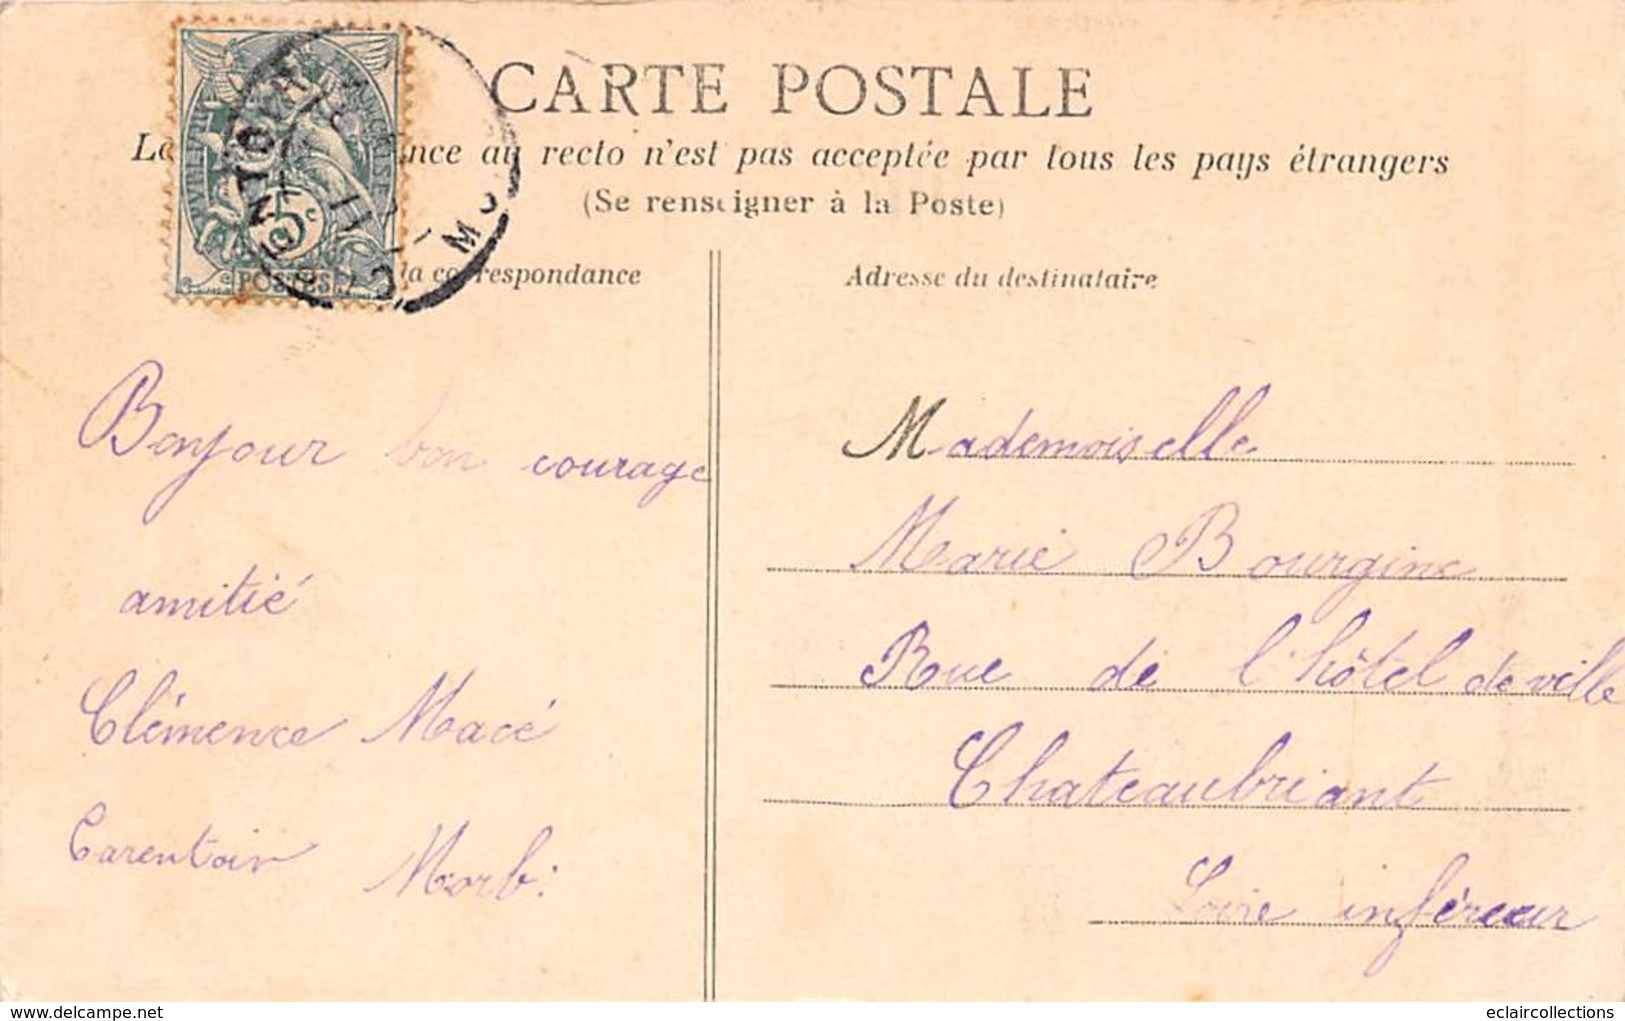 CARTE POSTALE
nce au recto n'est pas acceptée par tous les pays étrangers
(Se renseigner à la Poste)
la correspondance
Adresse du destinataire
5c
POSTES
Bonjour bon courage
amitié
Clémence Macé
Carentoir Morb:
Mademoiselle
Marie Bourgine
Rue de l'hôtel de ville
Chateaubriant
Loire inférieur
delcampe.net
eclaircollections